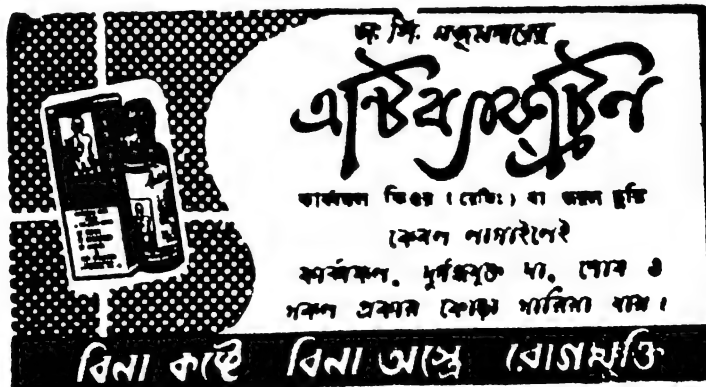 জে. পি. মজুমদারের
এন্টিব্যাক্ট্রিন
কার্ব্বঙ্কল কিওর (রেজিঃ) বা তরল ছুরি
কেবল লাগাইলেই
কার্ব্বঙ্কল, দুর্গন্ধযুক্ত ঘা, শোষ ও
সকল প্রকার ফোড়া সারিয়া যায়।
বিনা কষ্টে বিনা অস্ত্রে রোগমুক্তি